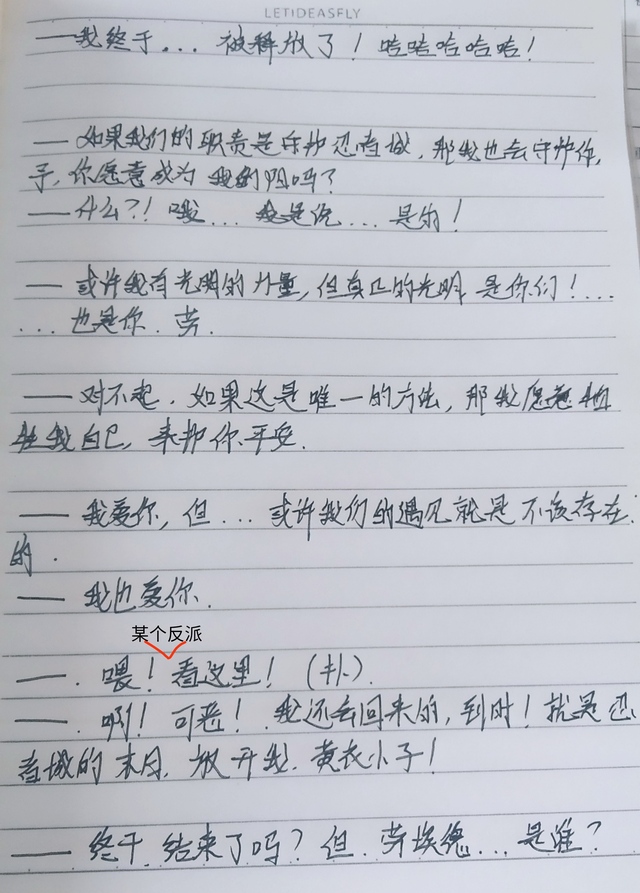 LETIDEASFLY
——我终于... 被释放了！哈哈哈哈哈！
——如果我们的职责是守护忍者城，那我也会守护你，
子，你愿意成为我的阴吗？
——什么？！哦... 我是说... 是的！
——或许我有光明的力量，但真正的光明是你们！...
...也是你.劳.
——对不起，如果这是唯一的方法，那我愿意牺
牲我自己，来护你平安.
——我爱你，但...或许我们的遇见就是不该存在
的.
——我也爱你.
某个反派
——.喂！看这里！(扑).
——.啊！可恶！我还会回来的，到时！就是忍
者城的末日.放开我.黄衣小子！
——终于结束了吗？但劳埃德...是谁？